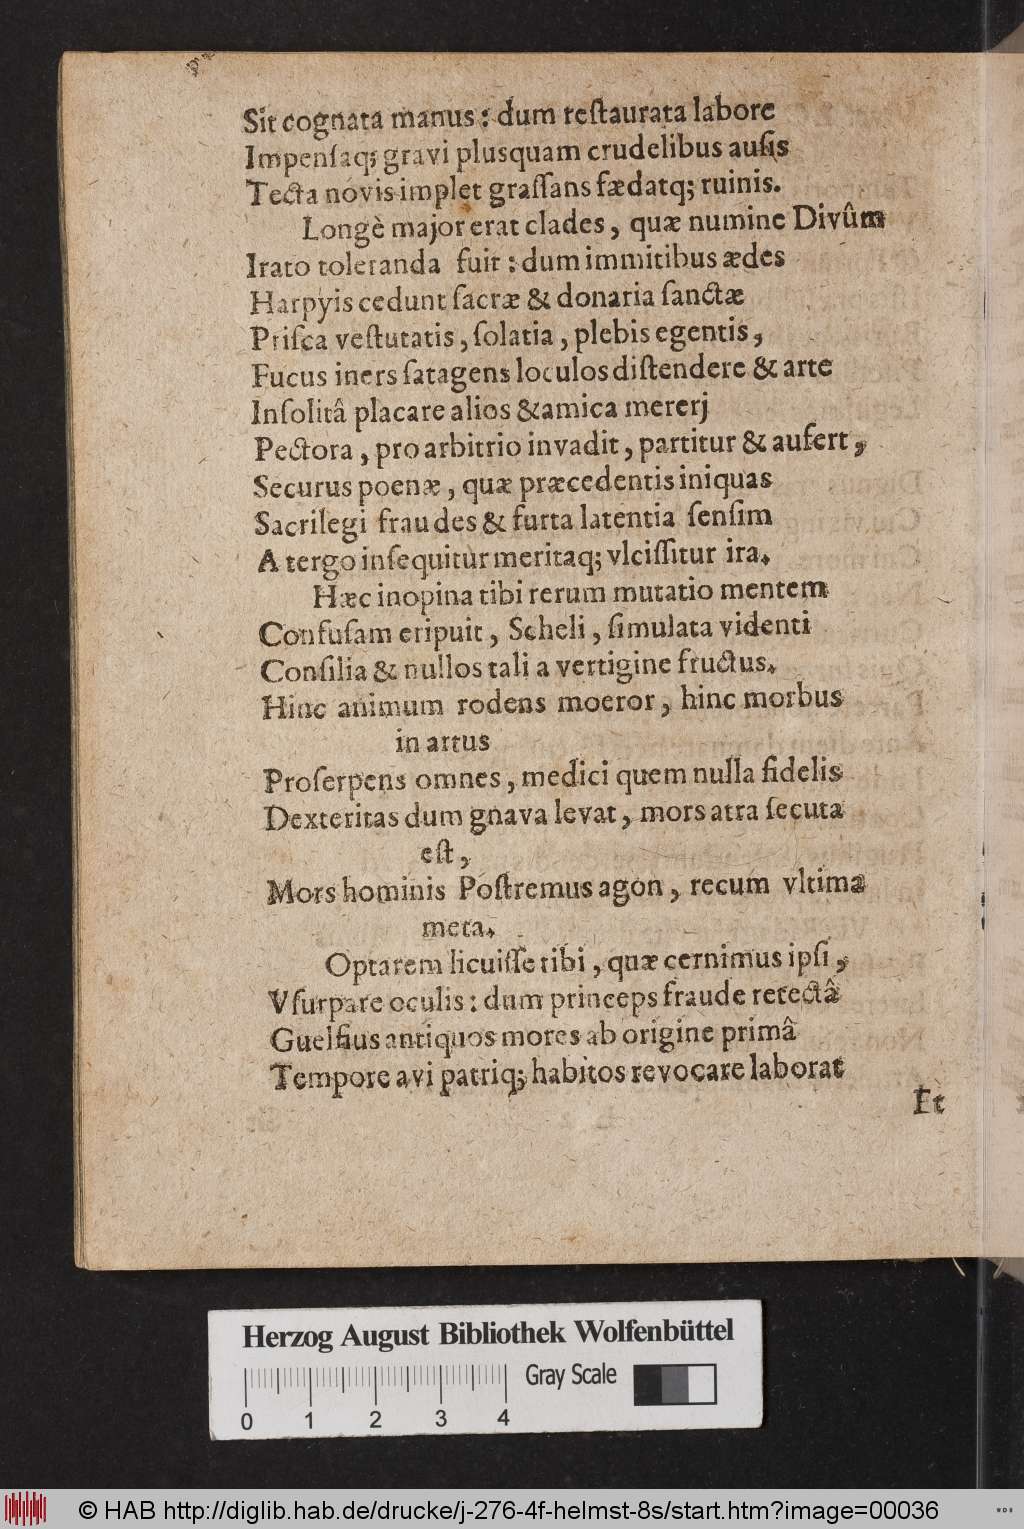 Sit cognata manus : dum reſtaurata labore
Impenſaq; gravi plusquam crudelibus auſis
Tecta novis implet graſſans fædatq; ruinis.
Longè major erat clades, quæ numine Divûm
Irato toleranda fuit : dum immitibus ædes
Harpyis cedunt ſacræ & donaria ſanctæ
Priſca veſtutatis, ſolatia, plebis egentis,
Fucus iners ſatagens loculos diſtendere & arte
Inſolitâ placare alios & amica mererj
Pectora, pro arbitrio invadit, partitur & aufert,
Securus poenæ, quæ præcedentis iniquas
Sacrilegi fraudes & furta latentia ſenſim
A tergo inſequitur meritaq; vlciſſitur ira.
Hæc inopina tibi rerum mutatio mentem
Confuſam eripuit, Scheli, ſimulata videnti
Conſilia & nullos tali a vertigine fructus.
Hinc animum rodens moeror, hinc morbus
in artus
Proſerpens omnes, medici quem nulla fidelis
Dexteritas dum gnava levat, mors atra ſecuta
eſt,
Mors hominis Poſtremus agon, recum vltima
meta.
Optarem licuiſſe tibi, quæ cernimus ipſi,
Vſurpare oculis : dum princeps fraude retectâ
Guelfius antiquos mores ab origine primâ
Tempore avi patriq; habitos revocare laborat
Et
Herzog August Bibliothek Wolfenbüttel
Gray Scale
0 1 2 3 4
© HAB http://diglib.hab.de/drucke/j-276-4f-helmst-8s/start.htm?image=00036